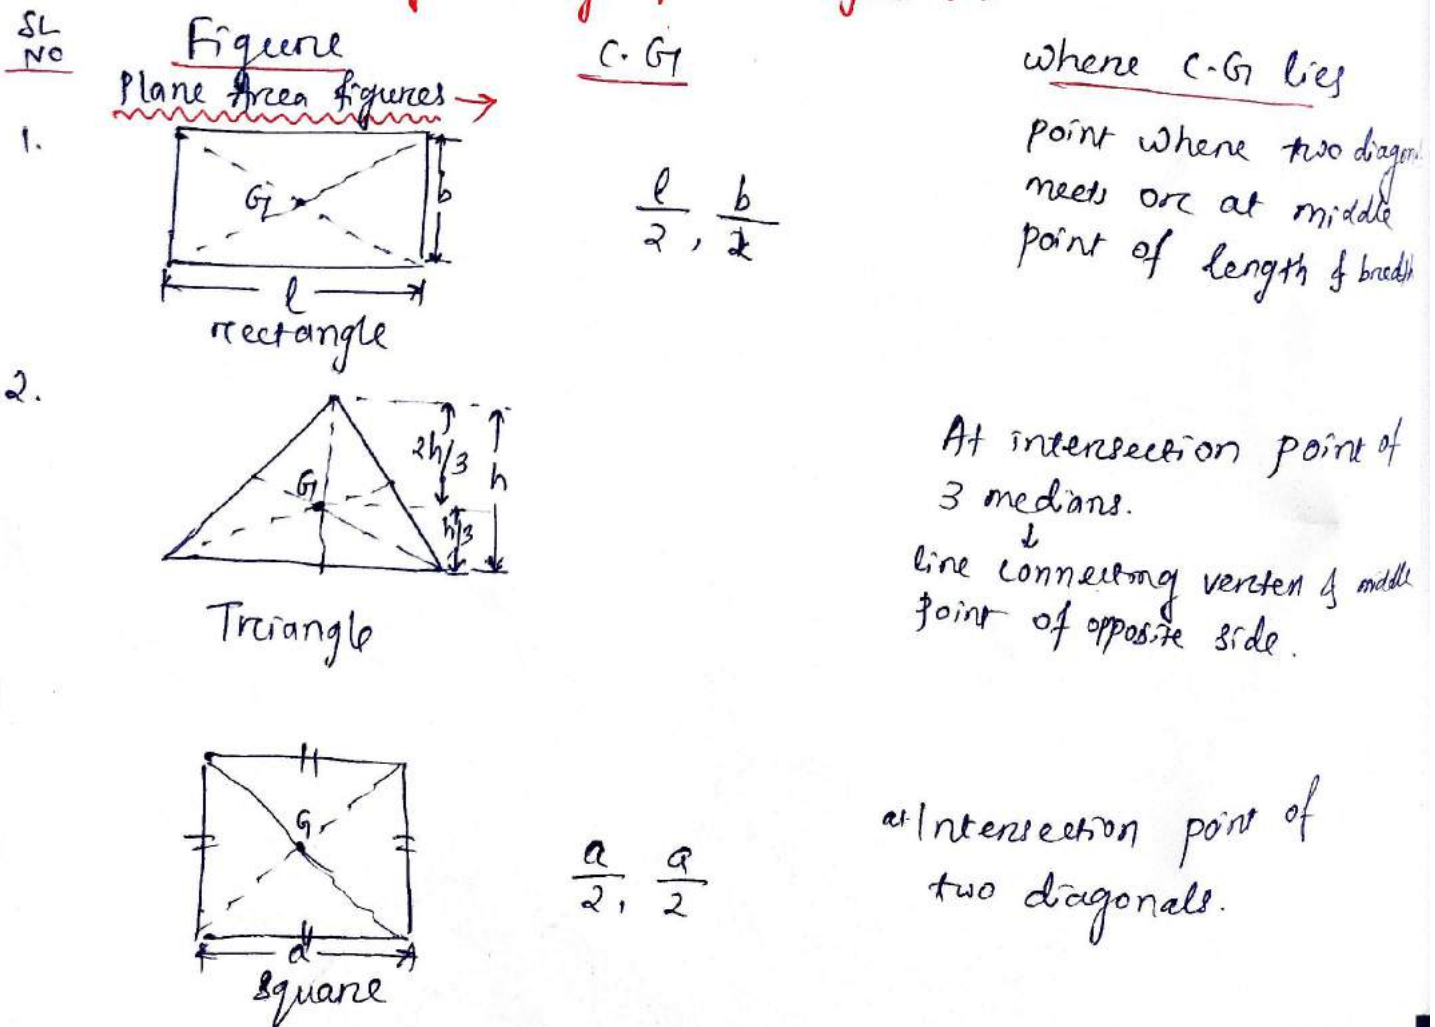 SL NO
Figure
C.G
where C.G lies
Plane Area figures →
1.
G
b
l
rectangle
l/2, b/2
point where two
meets or at middle
point of length &
2.
2h/3
h
G
h/3
Triangle
At intersection point of
3 medians.
↓
line connecting vertex & middle
point of opposite side.
G
a
square
a/2, a/2
at Intersection point of
two diagonals.